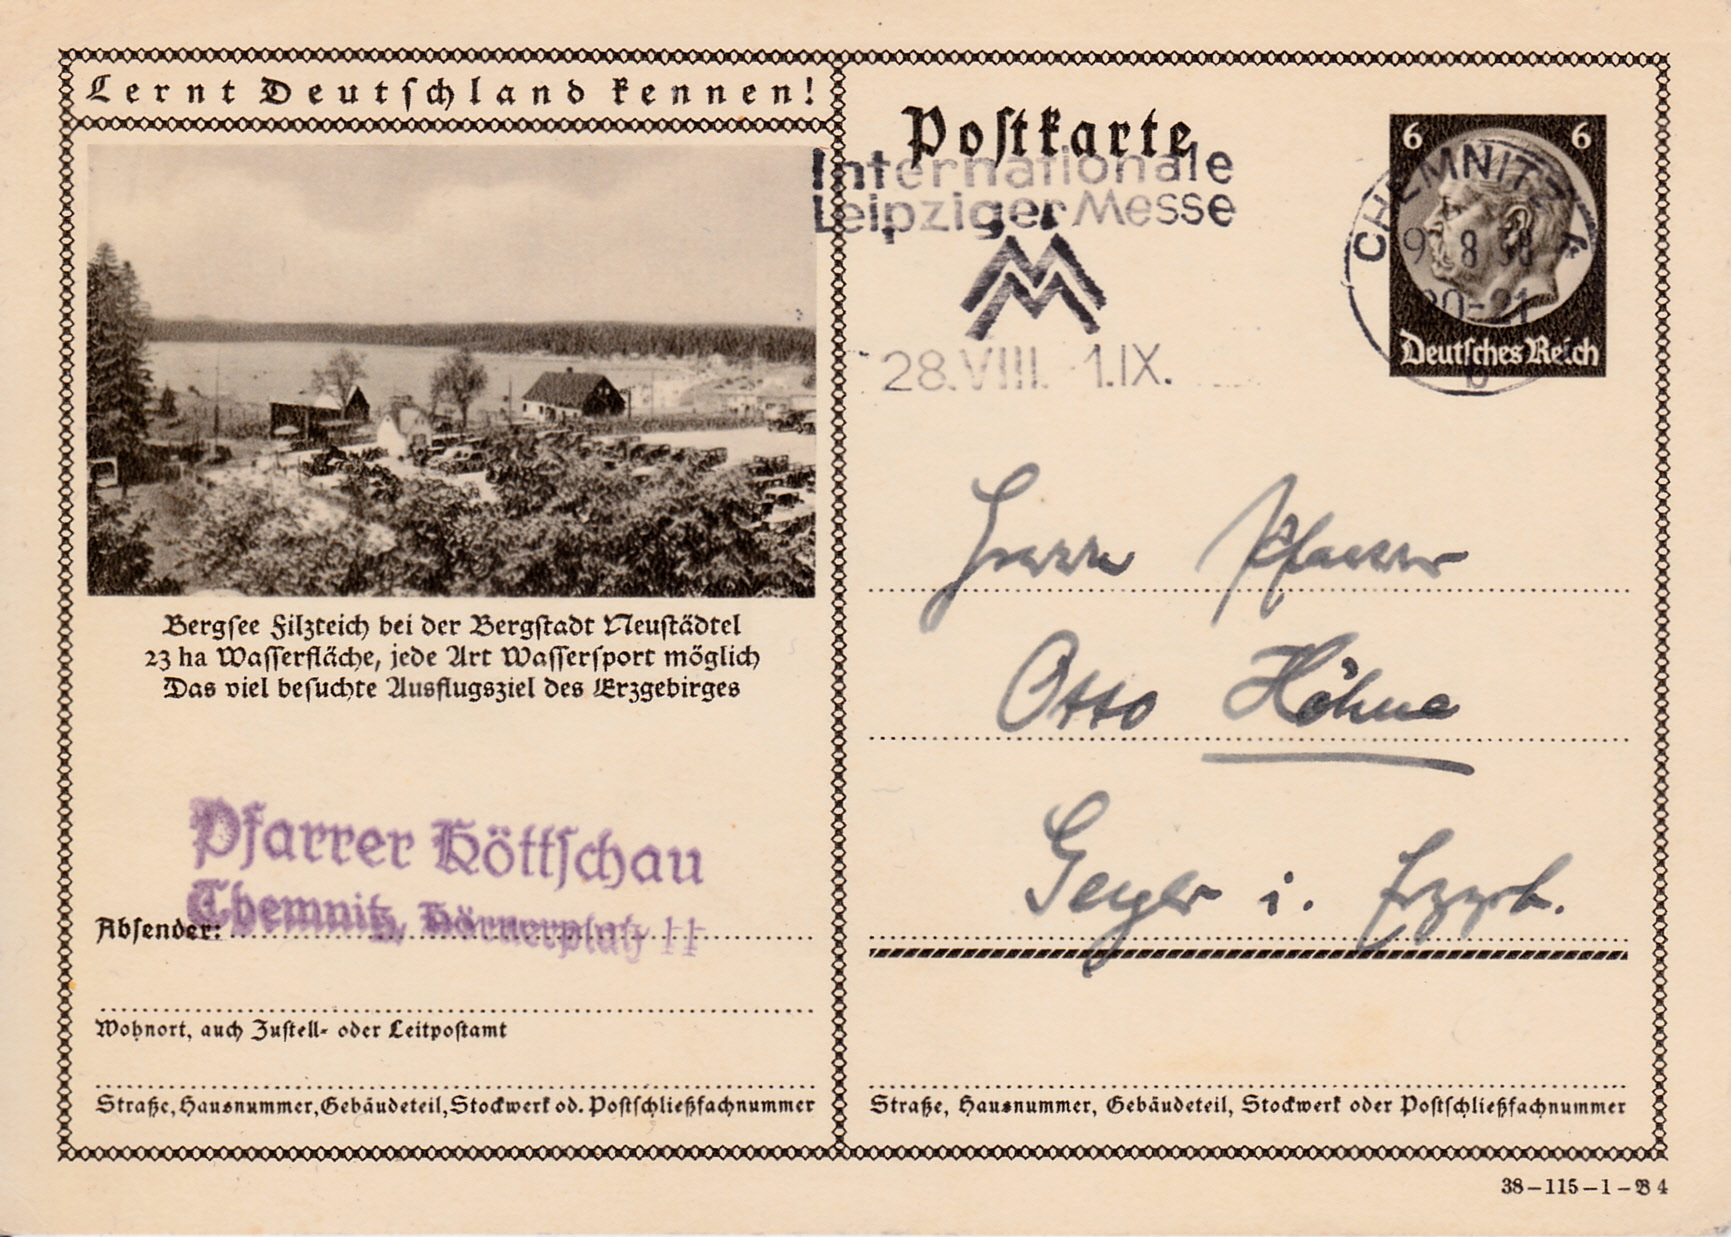 Lernt Deutschland kennen!
Bergsee Filzteich bei der Bergstadt Neustädtel
23 ha Wasserfläche, jede Art Wassersport möglich
Das viel besuchte Ausflugsziel des Erzgebirges
Pfarrer Köttschau
Chemnitz, Körnerplatz 11
Absender:
Wohnort, auch Zustell- oder Leitpostamt
Straße, Hausnummer, Gebäudeteil, Stockwerk od. Postschließfachnummer
Postkarte
Internationale
Leipziger Messe
28.VIII. 1.IX.
6 6
CHEMNITZ
9.8.38
20-21
b
Deutsches Reich
Herrn Pfarrer
Otto Höhne
Geyer i. Erzgb.
Straße, Hausnummer, Gebäudeteil, Stockwerk oder Postschließfachnummer
38-115-1-B 4